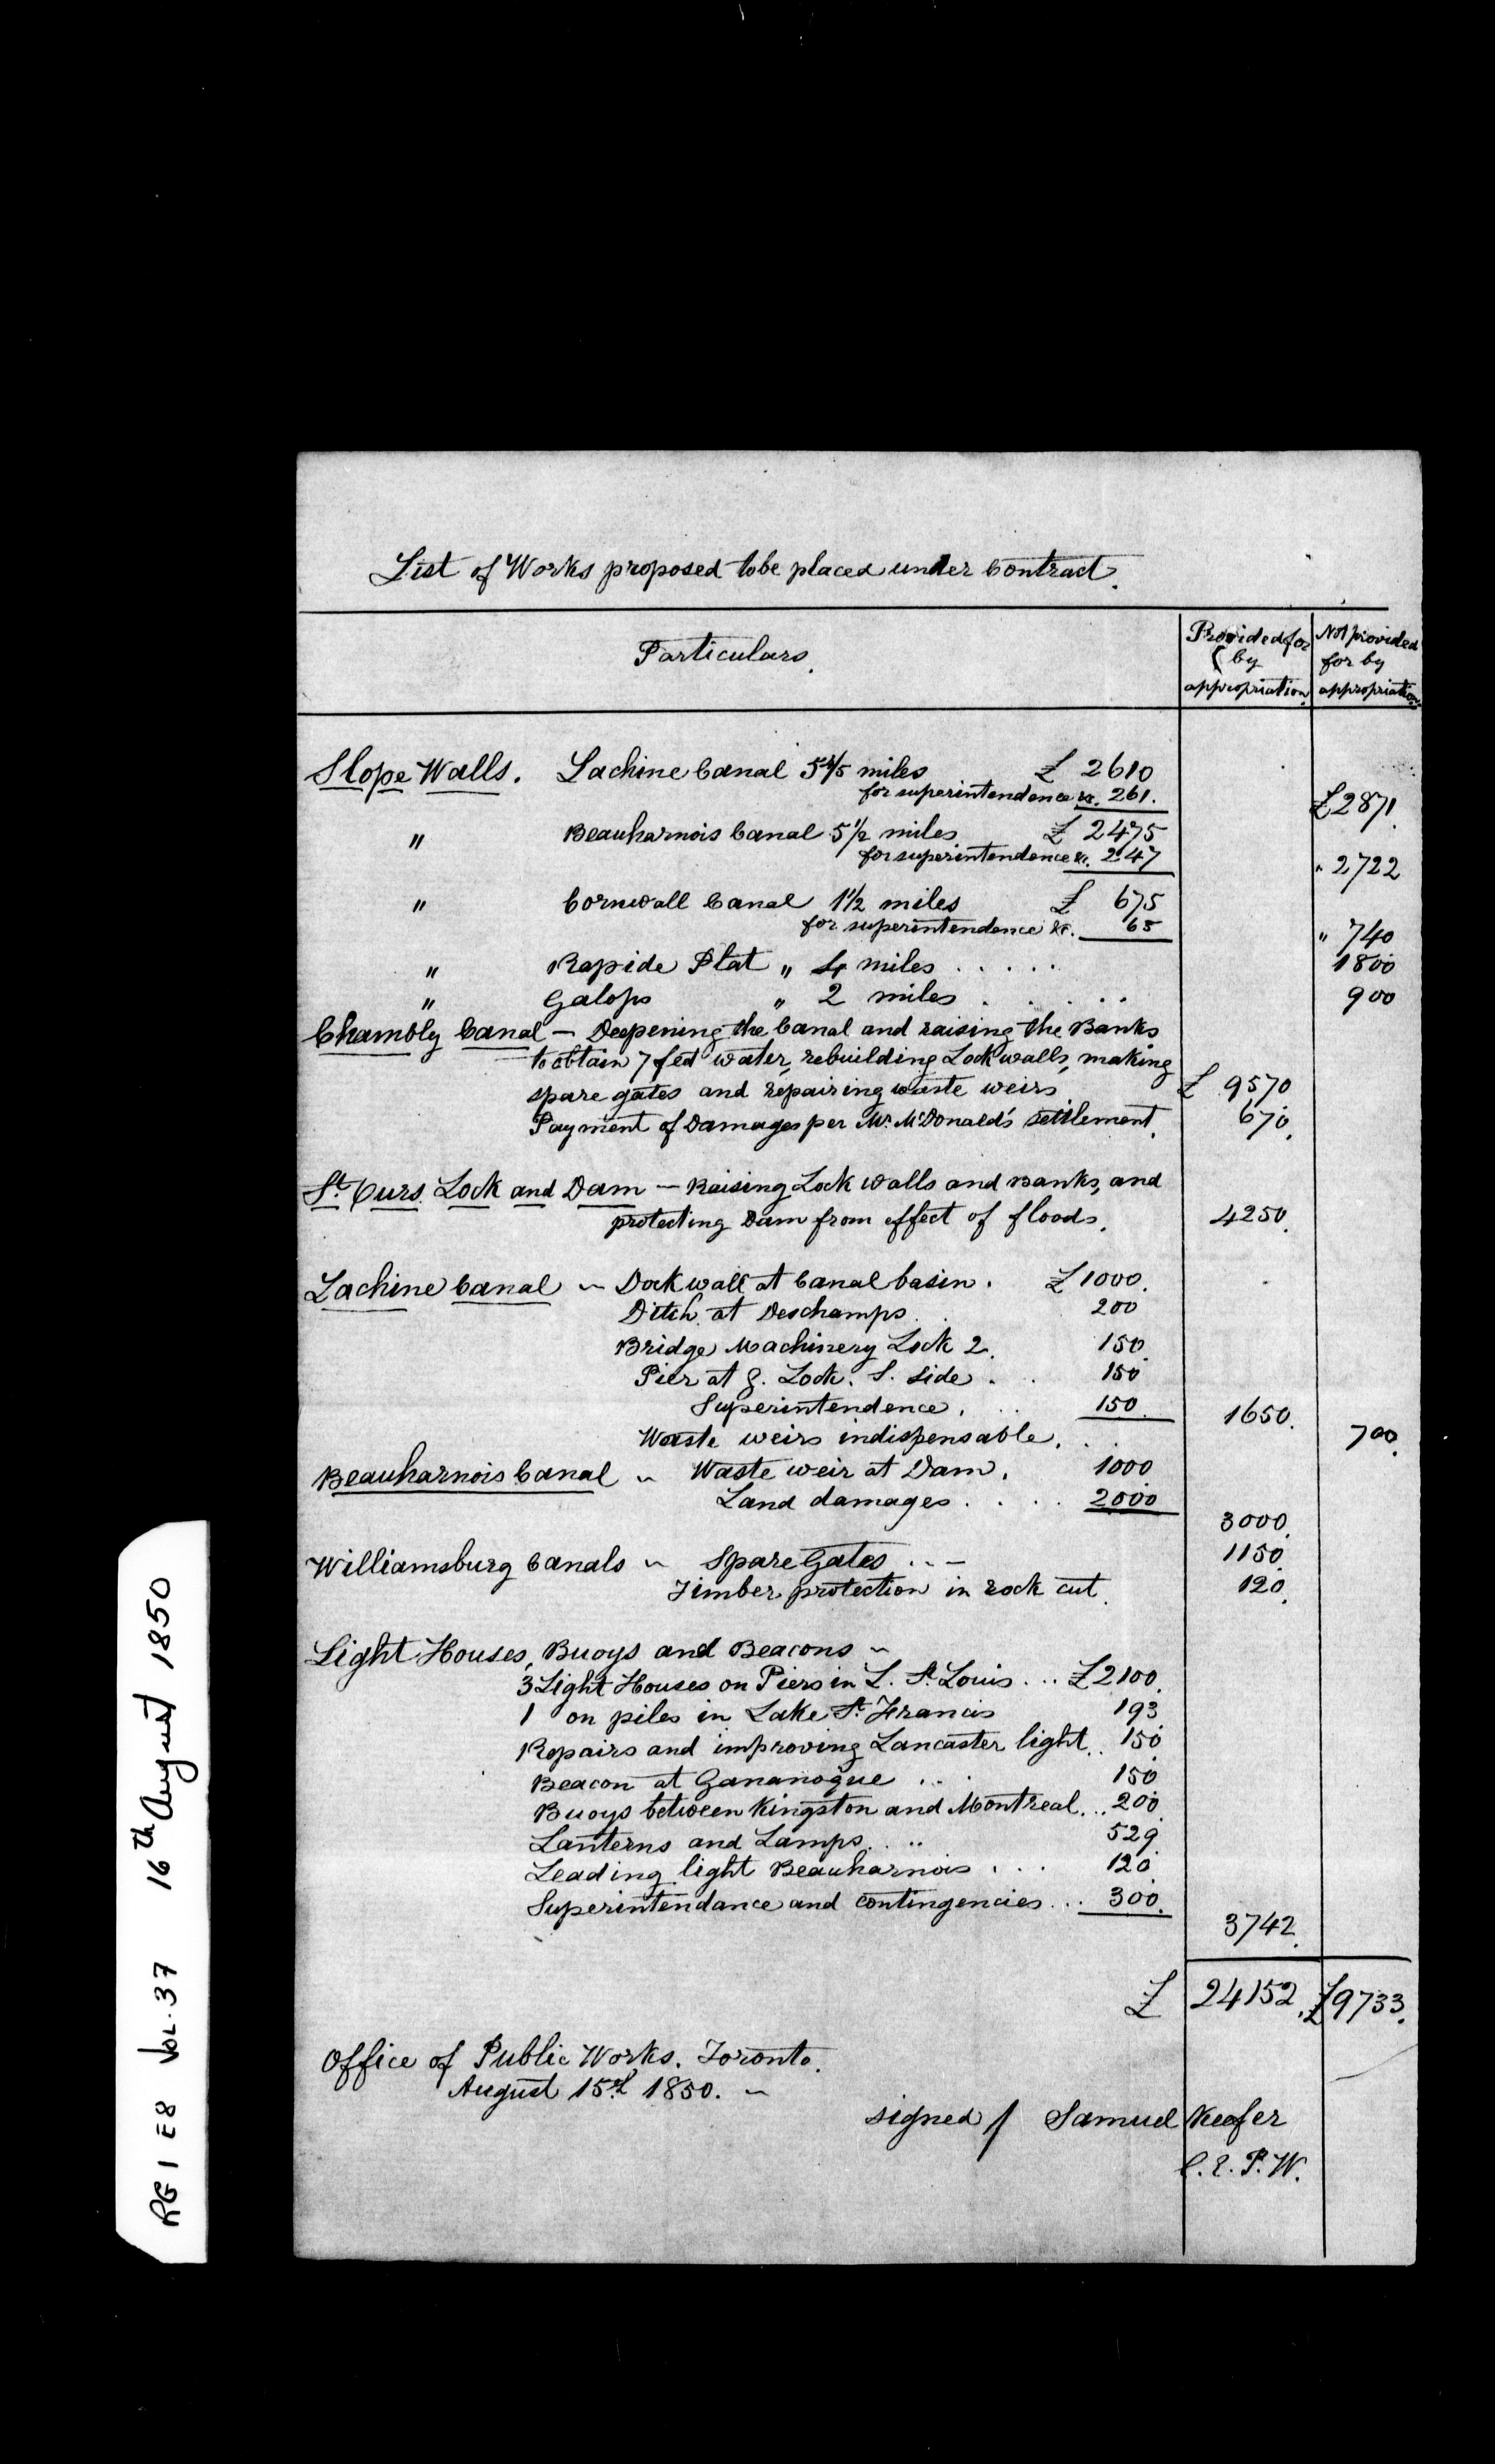 List of Works proposed to be placed under Contract.
Particulars.
Provided for by appropriation.
Not provided for by appropriation.
Slope Walls. Lachine Canal 5 4/5 miles £ 2610
for superintendence &c. 261. £2871.
" Beauharnois Canal 5 1/2 miles £ 2475
for superintendence &c. 247 " 2722
" Cornwall Canal 1 1/2 miles £ 675
for superintendence &c. 65 " 740
" Rapide Plat " 4 miles . . . . . 1800
" Galops " 2 miles . . . . . 900
Chambly Canal — Deepening the Canal and raising the Banks
to obtain 7 feet water, rebuilding Lock walls, making
spare gates and repairing waste weirs £ 9570
Payment of Damages per Mr. McDonald's settlement. 670.
St. Ours Lock and Dam — Raising Lock Walls and Banks, and
protecting Dam from effect of floods. 4250.
Lachine Canal ~ Dock wall at Canal basin. £1000.
Ditch at Deschamps. . 200
Bridge Machinery Lock 2. 150.
Pier at G. Lock. S. side . . 150
Superintendence. . . 150. 1650.
Waste weirs indispensable. . . 700.
Beauharnois Canal ~ Waste weir at Dam. 1000
Land damages . . . . 2000
3000.
Williamsburg Canals ~ Spare Gates . . — 1150
Timber protection in rock cut. 120.
Light Houses, Buoys and Beacons ~
3 Light Houses on Piers in L. St. Louis . . . £2100.
1 on piles in Lake St. Francis 193
Repairs and improving Lancaster light . . 150
Beacon at Gananoque . . . 150
Buoys between Kingston and Montreal . . . 200
Lanterns and Lamps . . . 529
Leading light Beauharnois . . . 120
Superintendance and contingencies . . . 300.
3742.
£ 24152. £9733.
Office of Public Works. Toronto.
August 15th 1850. ~
signed / Samuel Keefer
C.E.P.W.
RG 1 E8 VOL. 37 16th August 1850